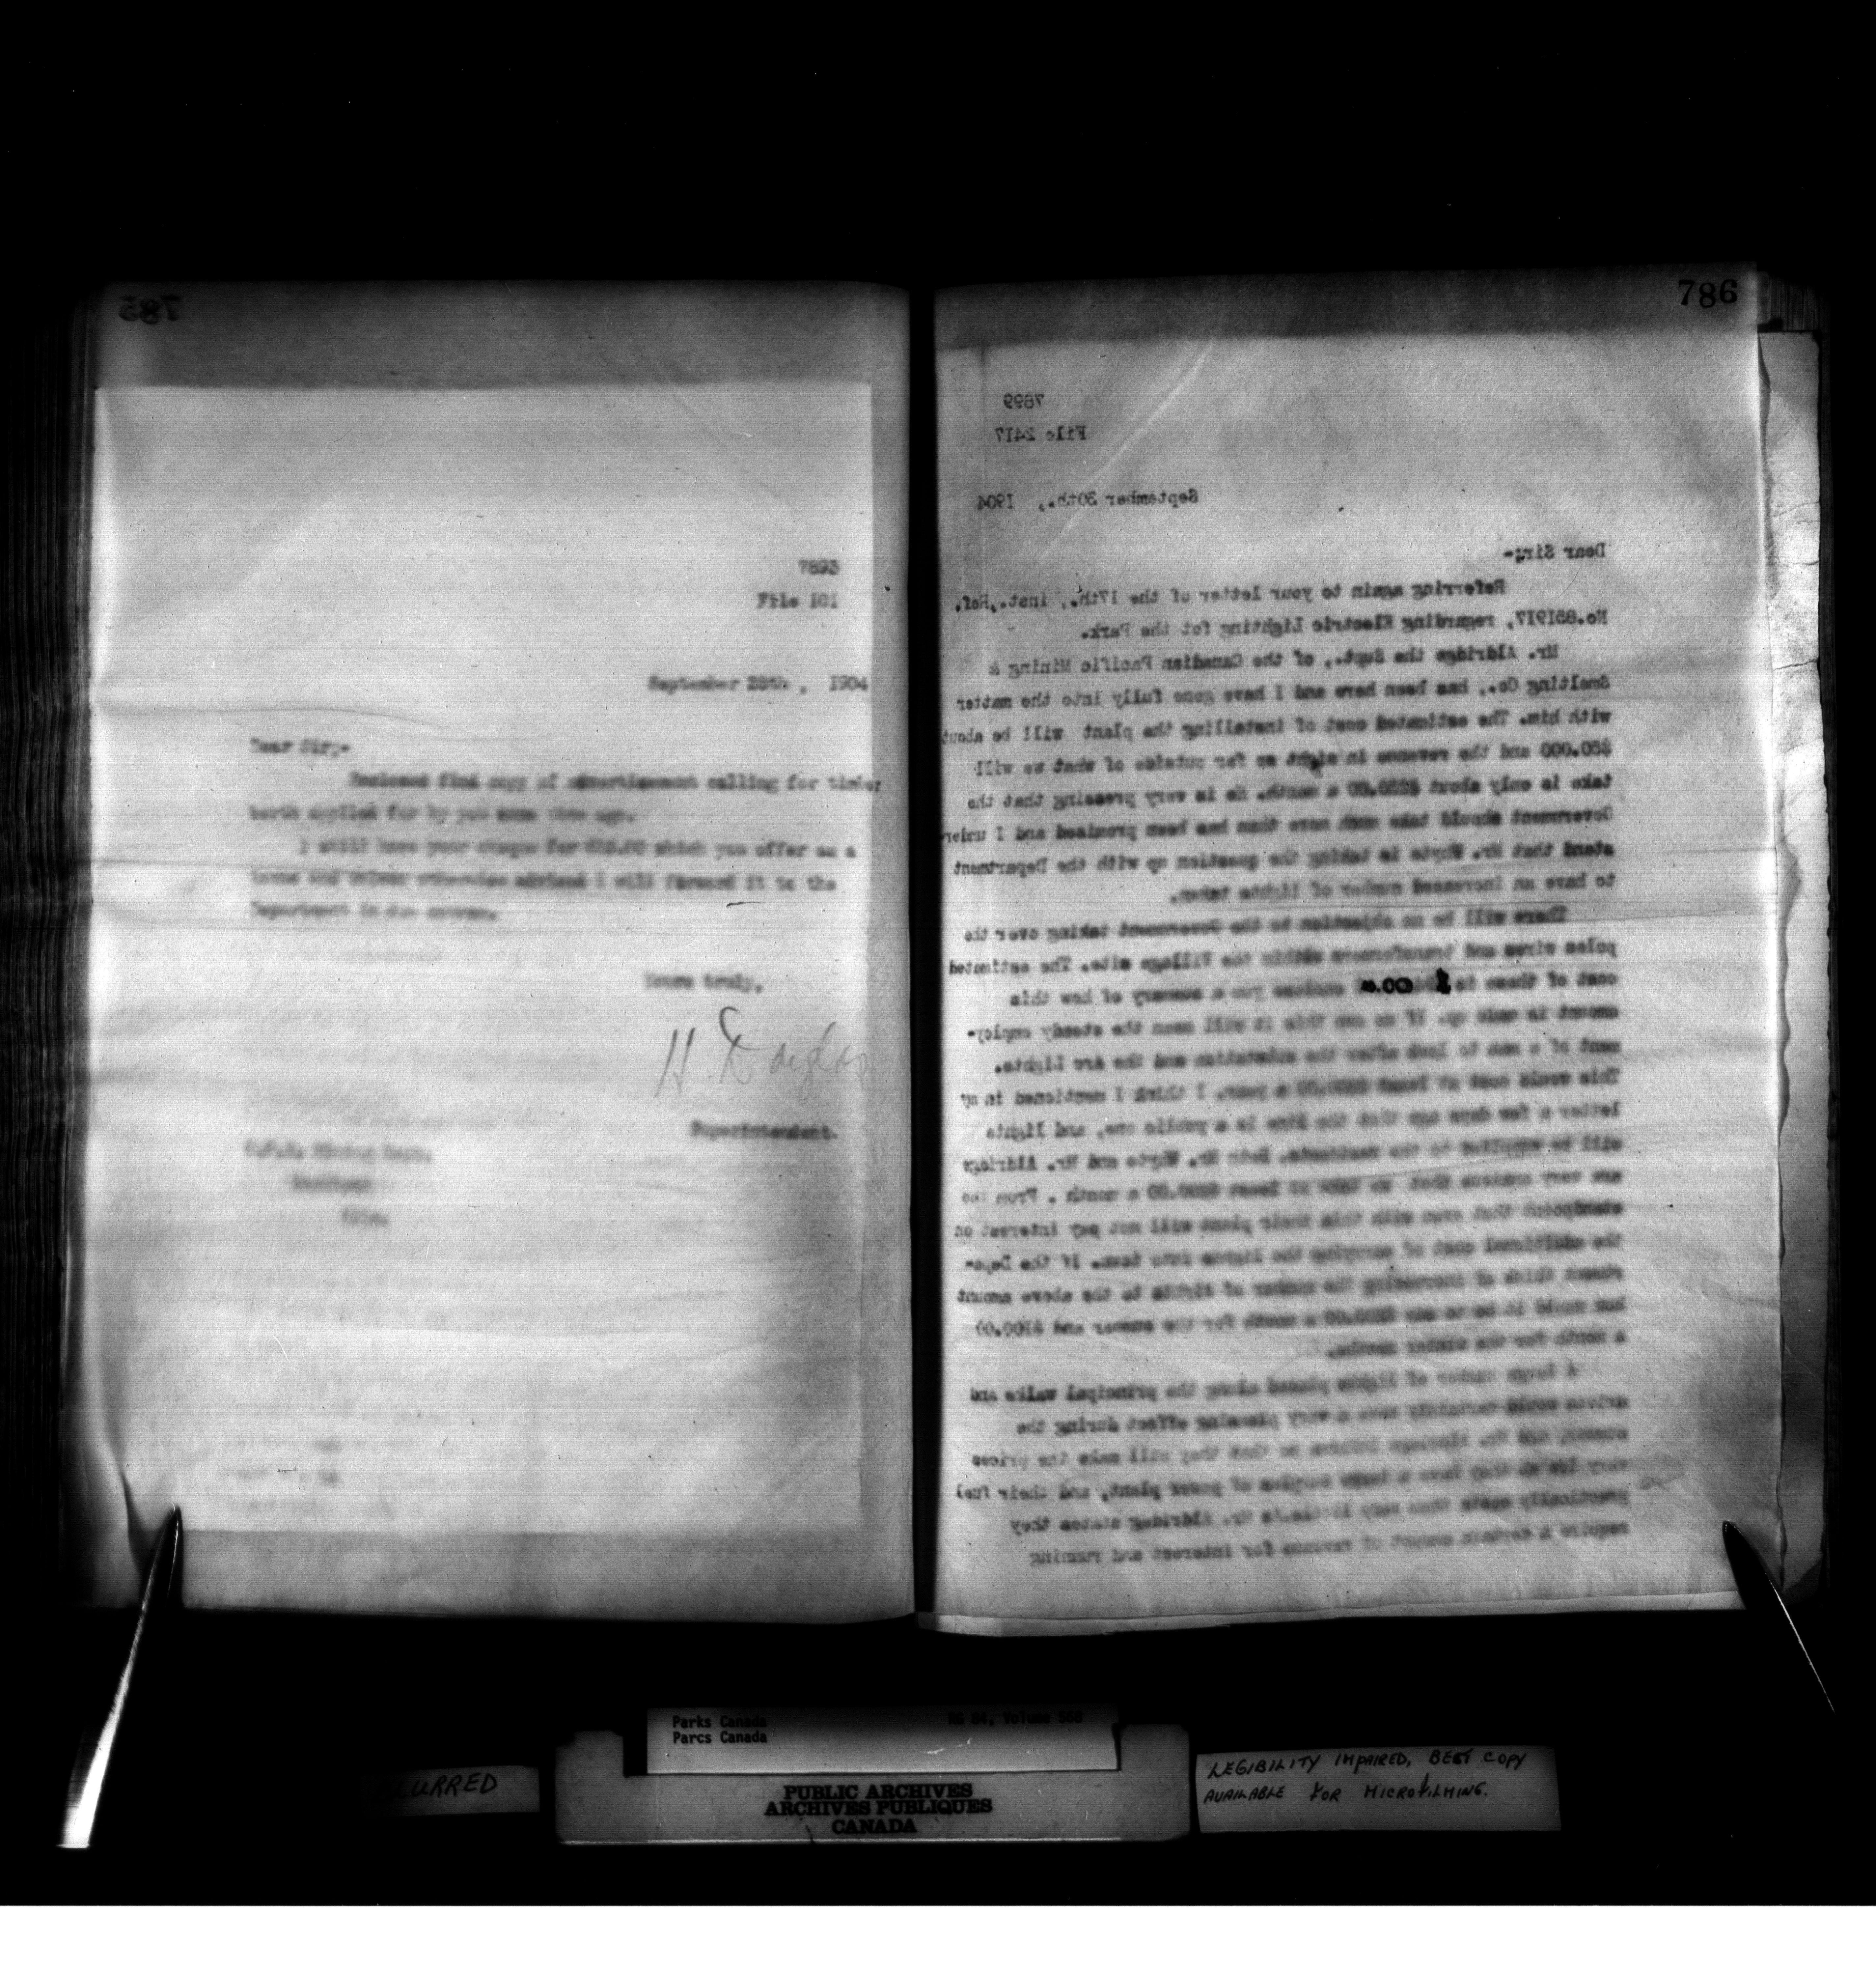 785
7893
File 101
September 28th, 1904
Dear Sir;-
Enclosed find copy of advertisement calling for timber
berth applied for by you some time ago.
I still have your cheque for which you offer as a
bonus and unless otherwise advised I will forward it to the
Department in due course.
Yours truly,
H. Douglas
Superintendent.
C.P.R. Mining Dept.
786
7899
File 2417
September 30th., 1904
Dear Sir;-
Referring again to your letter of the 17th., inst., Ref.
No.851917, regarding Electric Lighting fot the Park.
Mr. Aldridge the Supt., of the Canadian Pacific Mining &
Smelting Co., has been here and I have gone fully into the matter
with him. The estimated cost of installing the plant will be about
$50.000 and the revenue in sight so far outside of what we will
take is only about a month. He is very pressing that the
Government should take much more than has been promised and I under
stand that Mr. Whyte is taking the question up with the Department
to have an increased number of lights taken.
There will be no objection to the Government taking over the
poles wires and transformers within the Village site. The estimated
cost of these is enclose you a summary of how this
amount is made up. If we own this it will mean the steady employ-
ment of a man to look after the substation and the Arc Lights.
This would cost at least a year. I think I mentioned in my
letter a few days ago that the line is a public one, and lights
will be supplied to the residents. Both Mr. Whyte and Mr. Aldridge
are very anxious that we take at least $200.00 a month. From the
standpoint that even with this their plant will not pay interest on
the additional cost of carrying the lights into town. If the Depar-
ptment think of increasing the number of lights to the above amount
how would it be to say a month for the summer and $100.00
a month for the winter months.
A large number of lights placed along the principal walks and
drives would certainly have a very pleasing effect during the
summer, and Mr. Aldridge informs me that they will make the prices
very low as they have a large surplus of power plant, and their fuel
practically costs them very little. Mr. Aldridge states they
require a certain amount of revenue for interest and running
BLURRED
Parks Canada
Parcs Canada
RG 84, Volume
PUBLIC ARCHIVES
ARCHIVES PUBLIQUES
CANADA
LEGIBILITY IMPAIRED, BEST COPY
AVAILABLE FOR MICROFILMING.